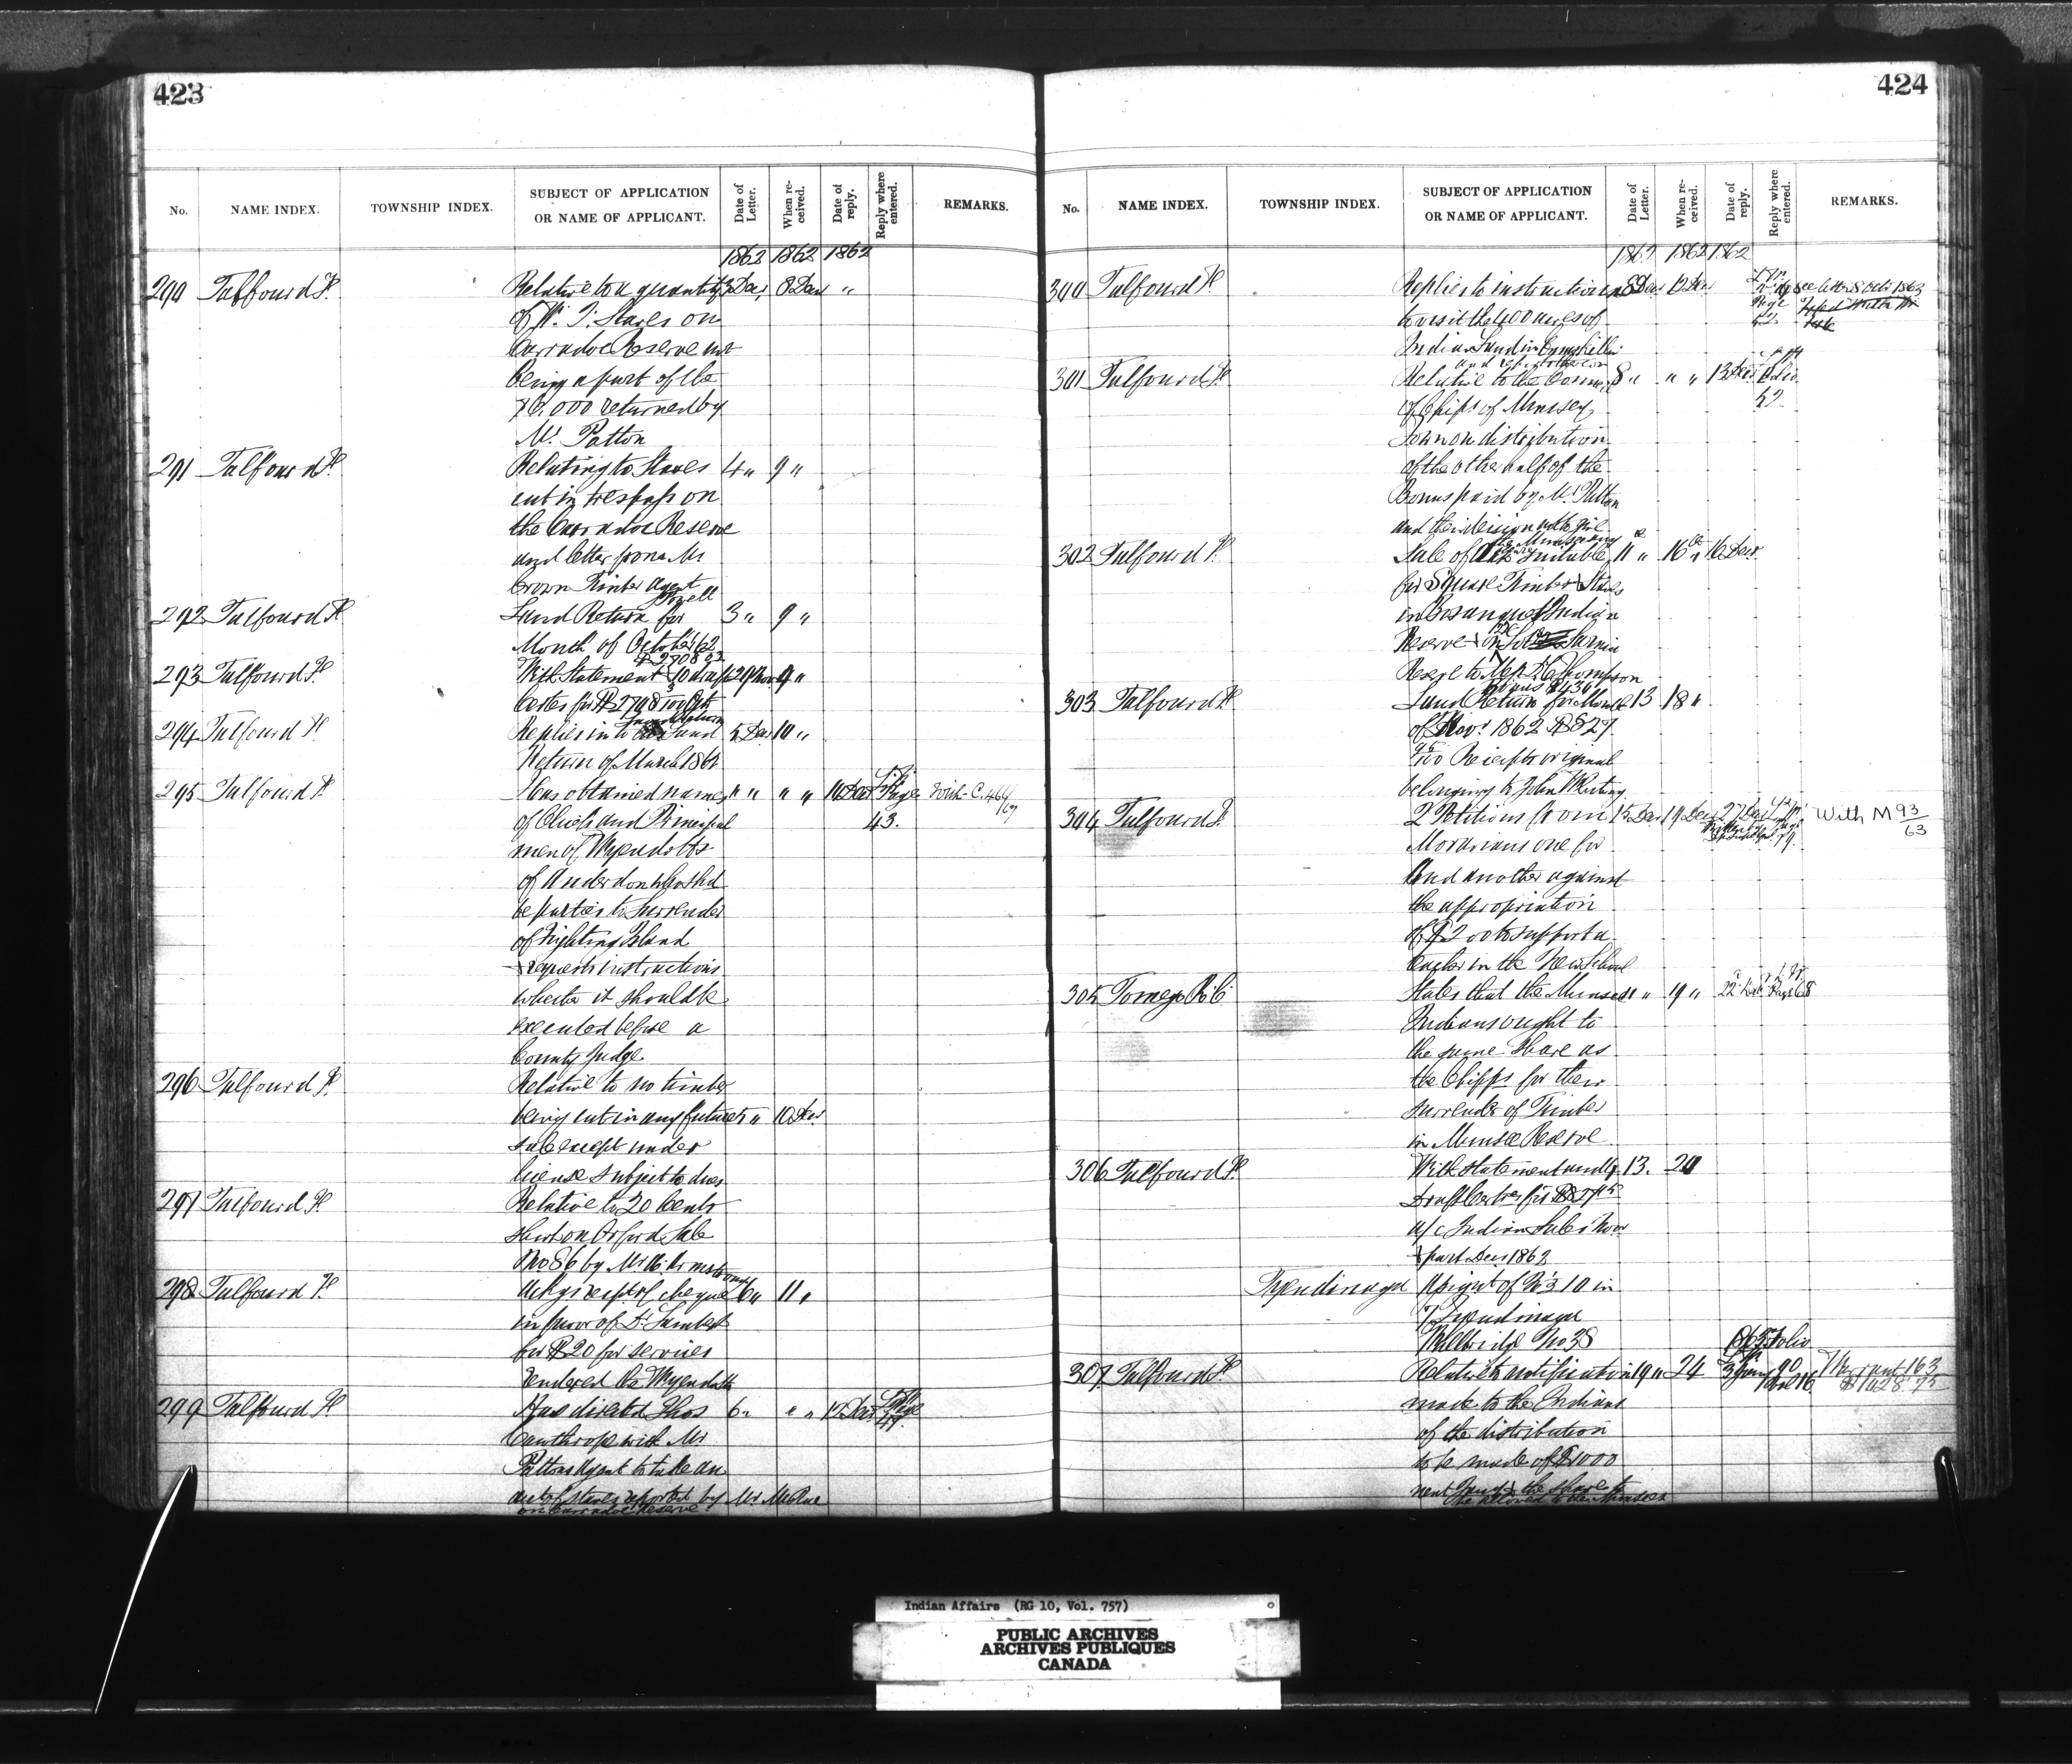 423
No. NAME INDEX. TOWNSHIP INDEX. SUBJECT OF APPLICATION OR NAME OF APPLICANT. Date of Letter. When received. Date of reply. Reply where entered. REMARKS.
1862 1862 1862
290 Talfourd F. Relative to a quantity 3 Dec, 8 Dec "
of W. I. Staves on
Carradoc Reserve not
being a part of the
70.000 returned by
Mr. Patton
291 Talfourd F. Relating to Staves 4 " 9 "
cut in trespass on
the Carradoc Reserve
and letter from Mr
Crown Timber agent
292 Talfourd F. Land Return for 3 " 9 "
Month of October 1862
$2708
293 Talfourd F. With Statement & 10 draft 29 Nov 9 "
Certes for $2708
294 Talfourd F. Replies Land 5 Dec 10 "
Return of March 1862
295 Talfourd F. Has obtained names " " " " Page With C. 464/67
of Chiefs and Principal 43.
men of Wyendotts
of Anderdon who shd
be parties to surrender
of Fighting Island
& requests instructions
whether it should be
executed before a
County Judge.
296 Talfourd F. Relative to no timber
being cut in any future 5 " 10 Dec.
sale except under
license subject to dues
297 Talfourd F. Relative to 20 Cents
short on Orford Sale
No 86 by Mr Armstrong
298 Talfourd F. Ackgs receipt of cheque 6 " 11 "
in favor of Dr Lambert
for $20 for services
rendered the Wyendotts
299 Talfourd F. Has directed Thos 6 " " " 12 Dec. Page
Cawthrop with Mr
Pattons Agent to take an
acct of staves reported by Mr McRae
on Carradoc Reserve
424
No. NAME INDEX. TOWNSHIP INDEX. SUBJECT OF APPLICATION OR NAME OF APPLICANT. Date of Letter. When received. Date of reply. Reply where entered. REMARKS.
1862 1862 1862
300 Talfourd F. Replies to instructions 8 Dec 12 Dec Page See letter 8 Oct 1863
to visit the 400 acres of
Indian Land in Enniskillen
and report thereon
301 Talfourd F. Relative to the Council 8 " " " 13 Dec Folio
of Chipps of Munsey 52
Town on distribution
of the other half of the
Bonus paid by Mr Patton
and their decision not to give
the Munseys any
302 Talfourd F. Sale of Oak suitable 11 " 16 " 16 Dec.
for Square Timber & Staves
in Bosanquet Indian
Reserve & on Sarnia
Reserve to Thompson
bonus $436
303 Talfourd F. Land Return for Month 13 18 "
of Novr. 1862 $827
95/100 Receipts original
belonging to John Whiting
304 Talfourd F. 2 Petitions from 15 Dec 19 Dec 27 Dec With M 93/63
Moravians one for
And another against
the appropriation
of $200 to support a
teacher in the New School
305 Tomego R. C. States that the Munsees " " 19 " 22 Dec Page 68
Indians ought to
the same share as
the Chipps for their
surrender of Timber
in Munsee Reserve
306 Talfourd F. With statement and 4 13. 20
Draft Certes for
a/c Indian Sales Nov
& part Dec 1862
Tyendinaga Assignt of No 3 10 in
7 Tyendinaga
Millbridge No 38
307 Talfourd F. Relative to notification 19 " 24 3 Jany 90 Warrant 163
made to the Indians $1628.75
of the distribution
to be made of $1000
next Jany & the share to
be allowed to the Munsees
Indian Affairs (RG 10, Vol. 757)
PUBLIC ARCHIVES
ARCHIVES PUBLIQUES
CANADA